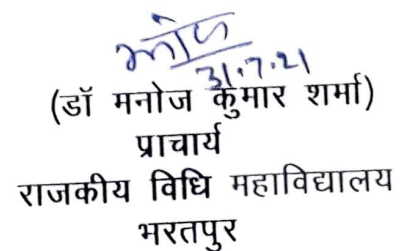 मनोज
31.7.21
(डॉ मनोज कुमार शर्मा)
प्राचार्य
राजकीय विधि महाविद्यालय
भरतपुर